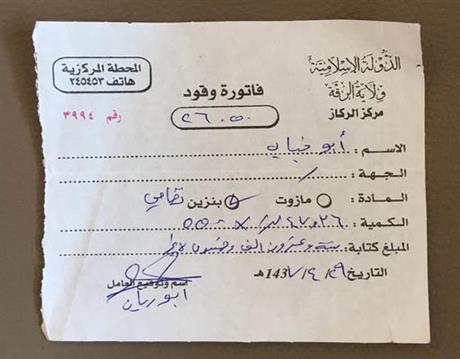 الدولة الإسلامية
ولاية الرقة
مركز الركاز
المحطة المركزية
هاتف ٢٤٥٤٥٣
فاتورة وقود
رقم ٣٩٩٤
٢٦٠٥٠
الاسم : أبو
الجهة : /
المادة : مازوت بنزين نظامي
الكمية : ليتر × ٥٥٠
المبلغ كتابة : ستة وعشرون الف وخمسون لا غير
التاريخ / ٤ / 143٧هـ
اسم وتوقيع العامل
ابو ريان